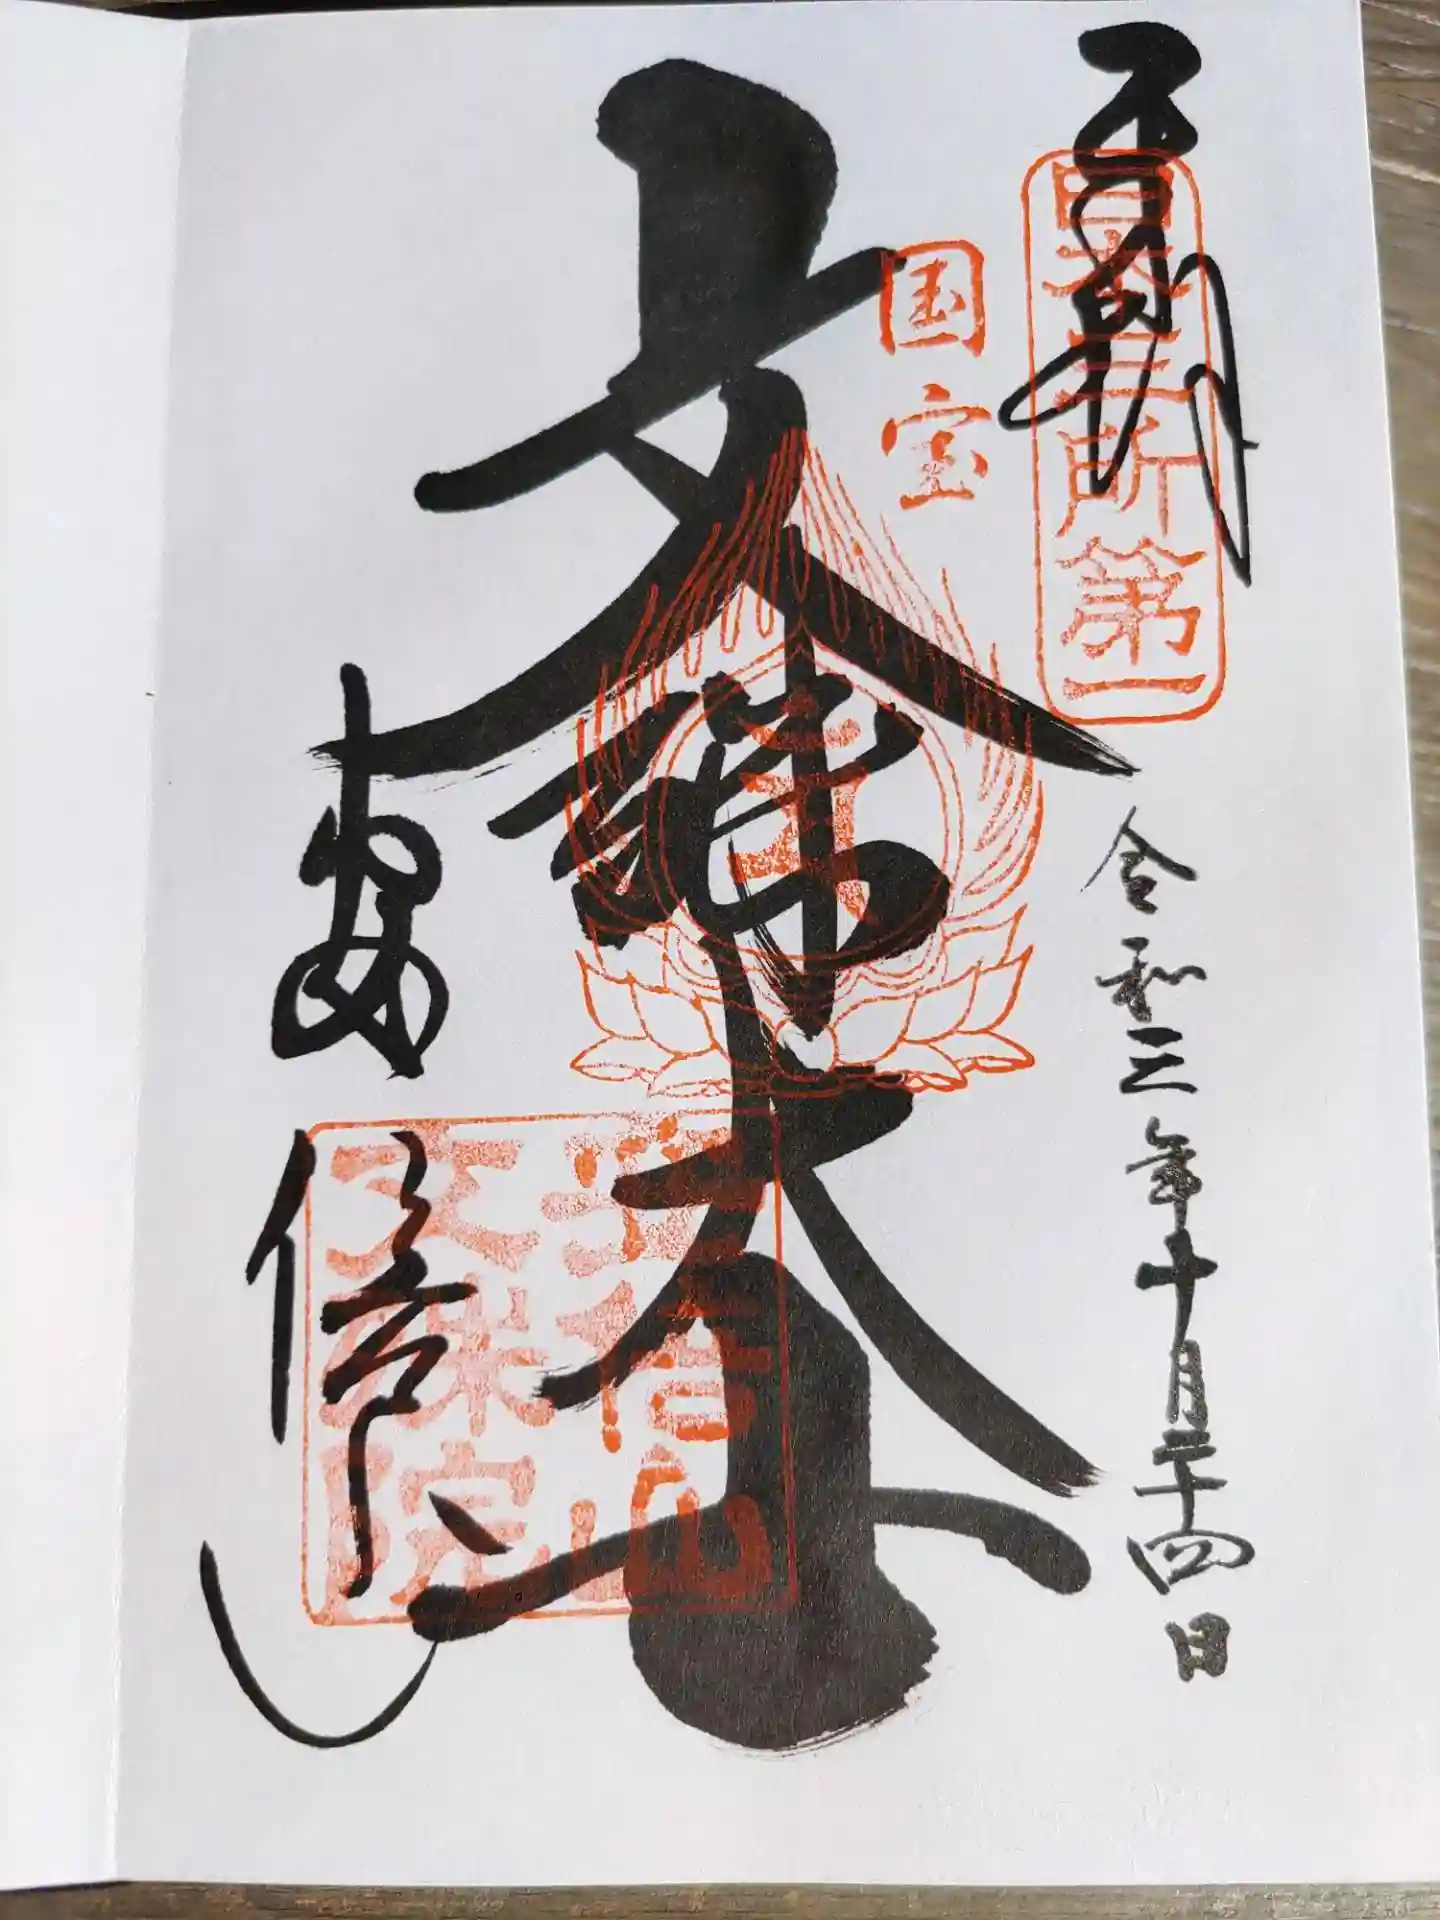 日本三所第一
令和三年十月二十四日
国宝
文殊大士
安倍山
安倍山
文殊院